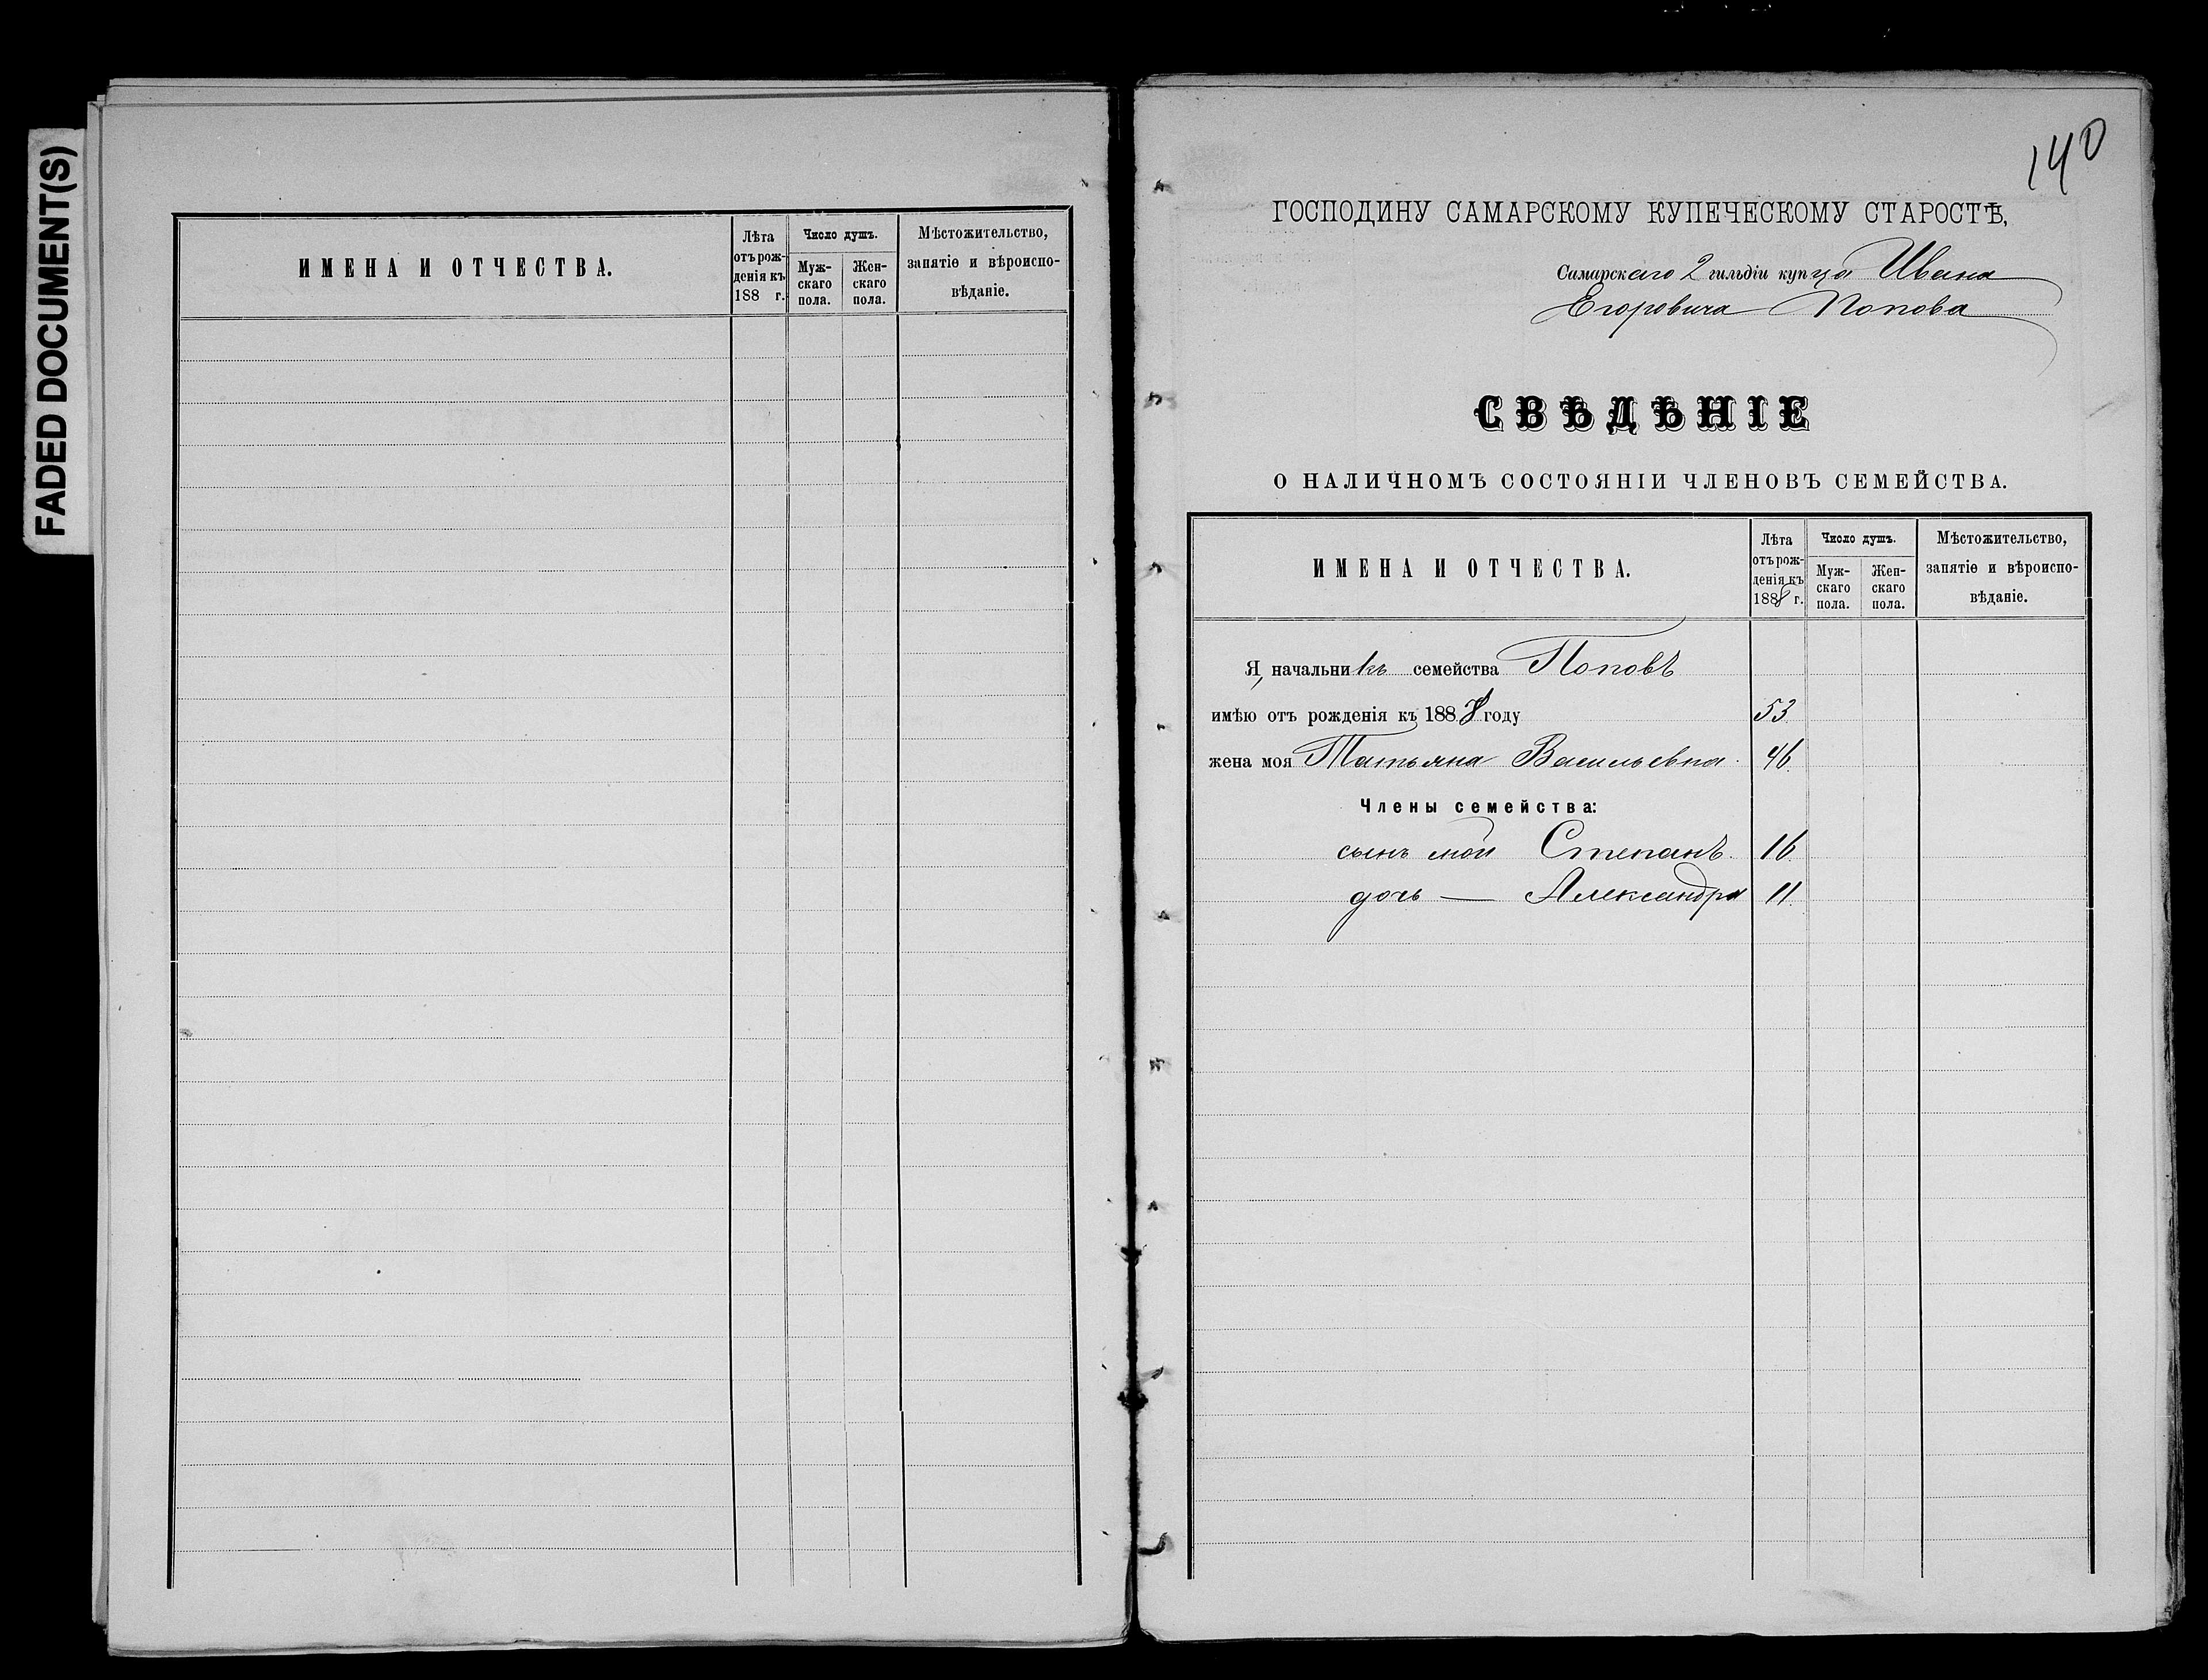 FADED DOCUMENT(S)
ИМЕНА И ОТЧЕСТВА.
Лѣта
отъ рож-
денія къ
188 г.
Число душъ.
Муж-
скаго
пола.
Жен-
скаго
пола.
Мѣстожительство,
занятіе и вѣроиспо-
вѣданіе.
140
ГОСПОДИНУ САМАРСКОМУ КУПЕЧЕСКОМУ СТАРОСТѢ,
Самарскаго 2 гильдіи купца Ивана
Егоровича Попова
СВѢДѢНІЕ
О НАЛИЧНОМЪ СОСТОЯНІИ ЧЛЕНОВЪ СЕМЕЙСТВА.
ИМЕНА И ОТЧЕСТВА.
Лѣта
отъ рож-
денія къ
1888 г.
Число душъ.
Муж-
скаго
пола.
Жен-
скаго
пола.
Мѣстожительство,
занятіе и вѣроиспо-
вѣданіе.
Я, начальникъ семейства Поповъ
имѣю отъ рожденія къ 1888 году 53
жена моя Татьяна Васильевна. 46.
Члены семейства:
сынъ мой Степанъ. 16.
дочь — Александра 11.